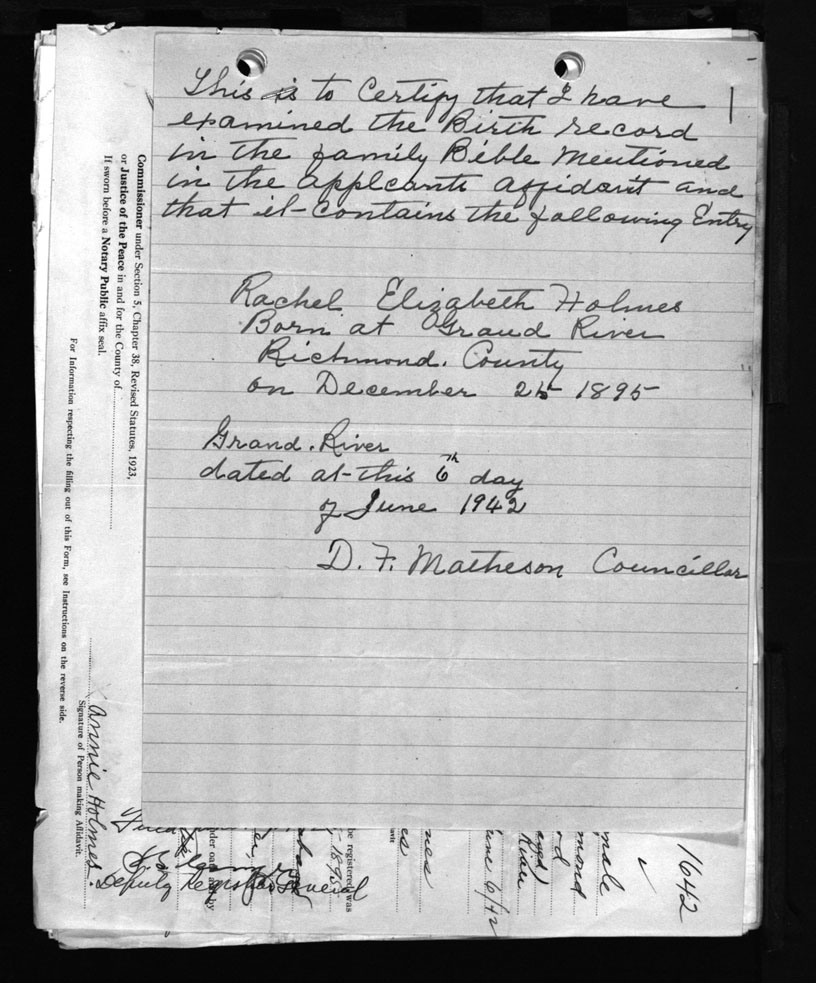 This is to Certify that I have
examined the Birth record
in the family Bible Mentioned
in the applcants affidavit and
that it contains the following Entry
Rachel Elizabeth Holmes
Born at Grand River
Richmond. County
on December 25 1895
Grand. River
dated at this 6th day
of June 1942
D. F. Matheson Councillor
Commissioner under Section 5, Chapter 38, Revised Statutes, 1923,
or Justice of the Peace in and for the County of
If sworn before a Notary Public affix seal.
For Information respecting the filling out of this Form, see Instructions on the reverse side.
Annie Holmes.
Signature of Person making Affidavit.
Deputy Registrar General
be registered was
1895
une 6/42
River
mond
male
1642